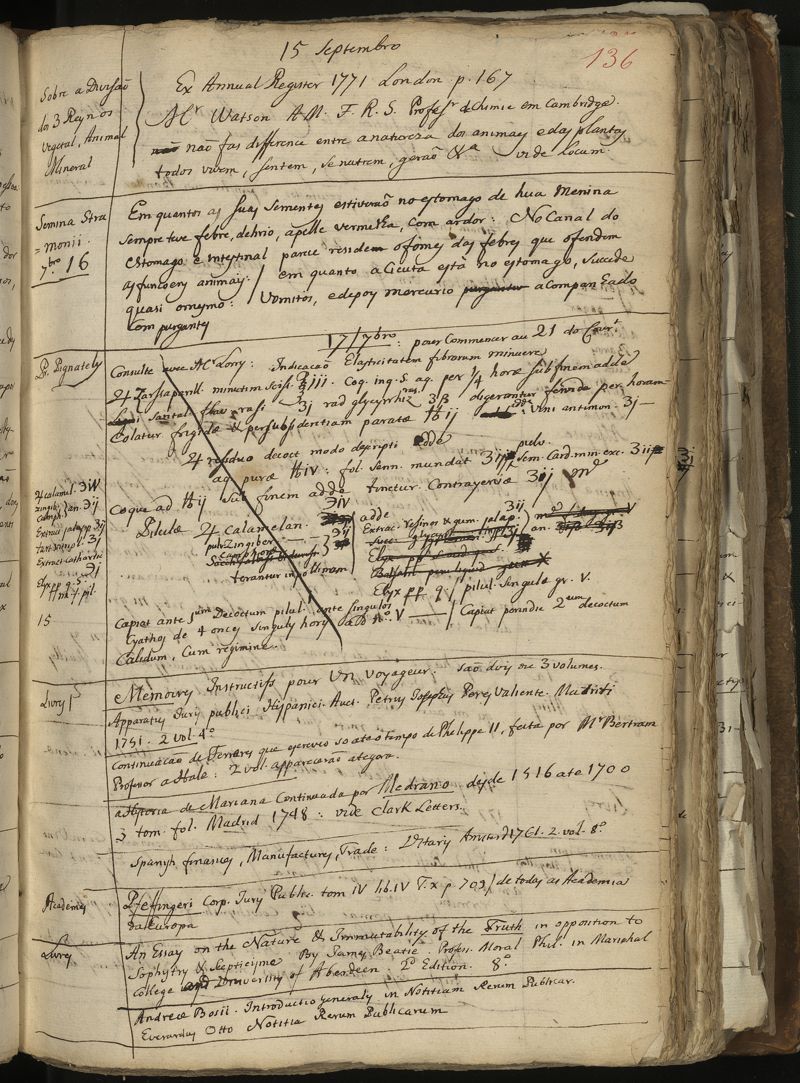 136
15 Septembro
Sobre a Divisão
dos 3 Reynos
Vegetal, Animal
Mineral
Ex Annual Register 1771 London p. 167
Mr Watson A.M. F.R.S. Profesr dChimie em Cambridge.
não fas differença entre a natureza dos animaes e das plantas
todos vivem, sentem, se nutrem, gerão &a vide locum.
Semina Stra
= monii.
7.bro 16
Em quanto as suas sementes estiverão no estomago de hua Menina
sempre teve febre, delirio, a pelle vermelha, com ardor: No Canal do
estomago e Intestinal parece residem o fomes das febres que ofendem
as funcoens animaes. / em quanto a Cicuta está no estomago, succede
quasi o mesmo: Vomitos, e depoes mercurio purgantes acompanhado
com purgantes
17/7bro : pour Commencer au 21 do Corrt
D. Pignately
Consulte avec Mr Lorry: Indicacão Elasticitatem fibrarum minuere
♃ Zarsaparill. minutim scis. ℥iii. Coq. in q. S. aq. per 1/4 horæ sub finem adde
rasi ʒj rad glycyrrhiz. ʒß digerantur fervide per horam
Colatur frigidæ & per subsidentiam paratæ ℔ij adde Vini antimon. ʒj —
♃ residuo decoct modo descripti adde
aq. puræ ℔iv: fol. Senn. mundat ʒij pulv. Sem. Card. min. exc. ʒij
Coque ad ℔ij sub finem adde tinctur. Contrayervæ ʒij
♃ calamel. ℈iv
zingib.
camph. } an. ℈ij
Extract jalapp. ʒij
tart. vitriol. ʒj
Extract. cathartic
ʒj
Elyx pp. q. S.
ff. m. f. pil.
15
Pilulæ ♃ calamelan. ℈iv
pulv Zingiber — —
Camphoræ
terantur in pollinem
adde
Extrac. resinos & gum. jalap. ʒij
an.
Elyx pp q s pilul. singulæ gr. V.
Capiat ante 1um Decoctum pilul. ante singulos
Cyathos de 4 onces singulis horis ad No. V — / Capiat poridie 2um decoctum
Calidum, Cum regimine.
Livros
Memoires Instructifs pour Un Voyageur: são dois ou 3 volumes.
Apparatus Juris publici Hispanici. Auct. Petrus Josephus Perez Valiente. Madriti
1751. 2 vol. 4º
Continuacão de Ferreras que escreveo so até o tempo de Philippe II, feita por Mr Bertram
Profesor a Hale: 2 vol. appareceraõ ategora.
a Historia de Mariana Continuada por Medrano desde 1516 ate 1700
3 tom. fol. Madrid 1748: vide Clark Letters.
Spanish finances, Manufactures, Trade: Amsterd 1761. 2 vol. 8.º
Academies
Pfeffingeri Corp. Jury Public. tom IV lib. IV T. x p. 702 / de todas as Academias
da Europa
Livres
An Essay on the Nature & Immutability of the Truth in opposition to
Sophystry & Scepticisme By James Beatie Profess. Moral Phil. in Marishal
College and University of Aberdeen 2d Edition. 8.º
Andreæ Bosii. Introductio generalis in Notitiam Rerum Publicar.
Everardus Otto Notitia Rerum Publicarum